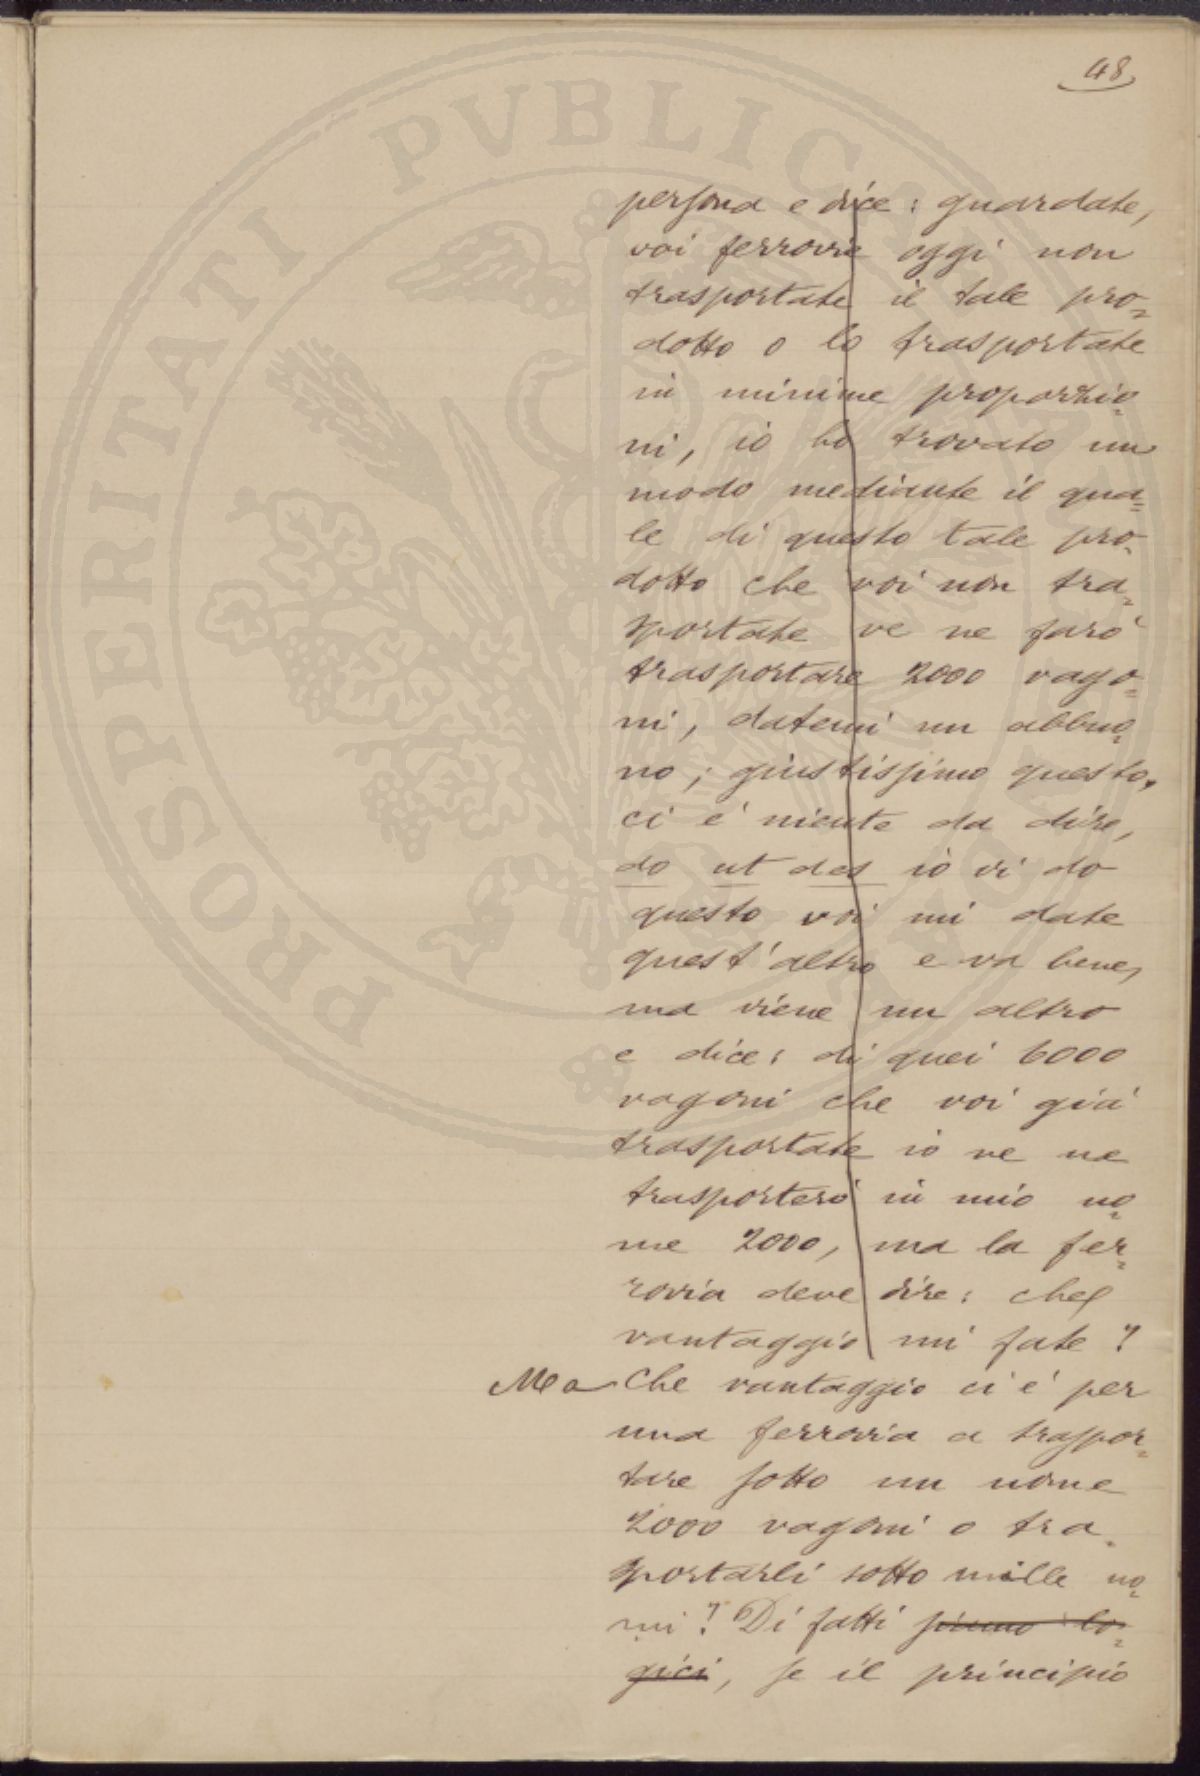 48
persona e dice: guardate,
voi ferrovie oggi non
trasportate il tale pro=
dotto o lo trasportate
in minime proporzio=
ni, io ho trovato un
modo mediante il qua=
le di questo tale pro=
dotto che voi non tra=
sportate ve ne farò
trasportare 2000 vago=
ni, datemi un abbuo=
no; giustissimo questo,
ci è niente da dire,
do ut des io vi do
questo voi mi date
quest'altro e va bene,
ma viene un altro
e dice: di quei 6000
vagoni che voi già
trasportate io ve ne
trasporterò in mio no=
me 2000, ma la fer=
rovia deve dire: che
vantaggio mi fate?
Ma che vantaggio ci è per
una ferrovia a traspor=
tare sotto un nome
2000 vagoni o tra=
sportarli sotto mille no=
mi? Di fatti siamo lo=
gici, se il principio
PROSPERITATI PVBLICAE